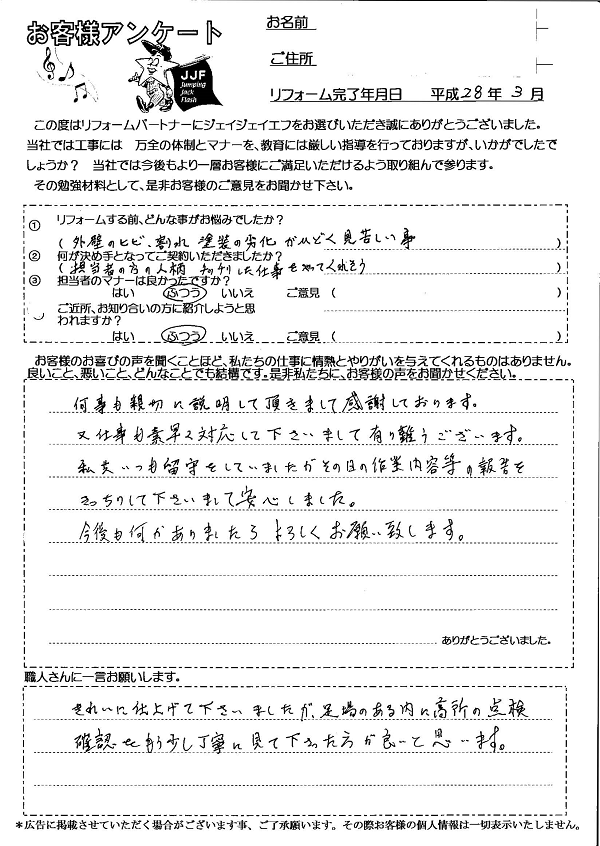 お客様アンケート
JJF
Jumping
Jack
Flash
お名前
ご住所
リフォーム完了年月日 平成28年3月
この度はリフォームパートナーにジェイジェイエフをお選びいただき誠にありがとうございました。
当社では工事には 万全の体制とマナーを、教育には厳しい指導を行っておりますが、いかがでしたで
しょうか? 当社では今後もより一層お客様にご満足いただけるよう取り組んで参ります。
その勉強材料として、是非お客様のご意見をお聞かせ下さい。
① リフォームする前、どんな事がお悩みでしたか?
( 外壁のヒビ、割れ 塗装の劣化がひどく見苦しい事
② 何が決め手となってご契約いただきましたか?
( 担当者の方の人柄 キッチリした仕事をやってくれそう
③ 担当者のマナーは良かったですか?
はい ふつう いいえ ご意見 ( )
ご近所、お知り合いの方に紹介しようと思
われますか?
はい ふつう いいえ ご意見 ( )
お客様のお喜びの声を聞くことほど、私たちの仕事に情熱とやりがいを与えてくれるものはありません。
良いこと、悪いこと、どんなことでも結構です。是非私たちに、お客様の声をお聞かせください。
何事も親切に説明して頂きまして感謝しております。
又仕事も素早く対応して下さいまして有り難うございます。
私共いつも留守をしていましたがその日の作業内容等の報告を
きっちりして下さいまして安心しました。
今後も何かありましたらよろしくお願い致します。
ありがとうございました。
職人さんに一言お願いします。
きれいに仕上げて下さいましたが、足場のある内に高所の点検
確認をもう少し丁寧に見て下さった方が良いと思います。
*広告に掲載させていただく場合がございます事、ご了承願います。その際お客様の個人情報は一切表示いたしません。